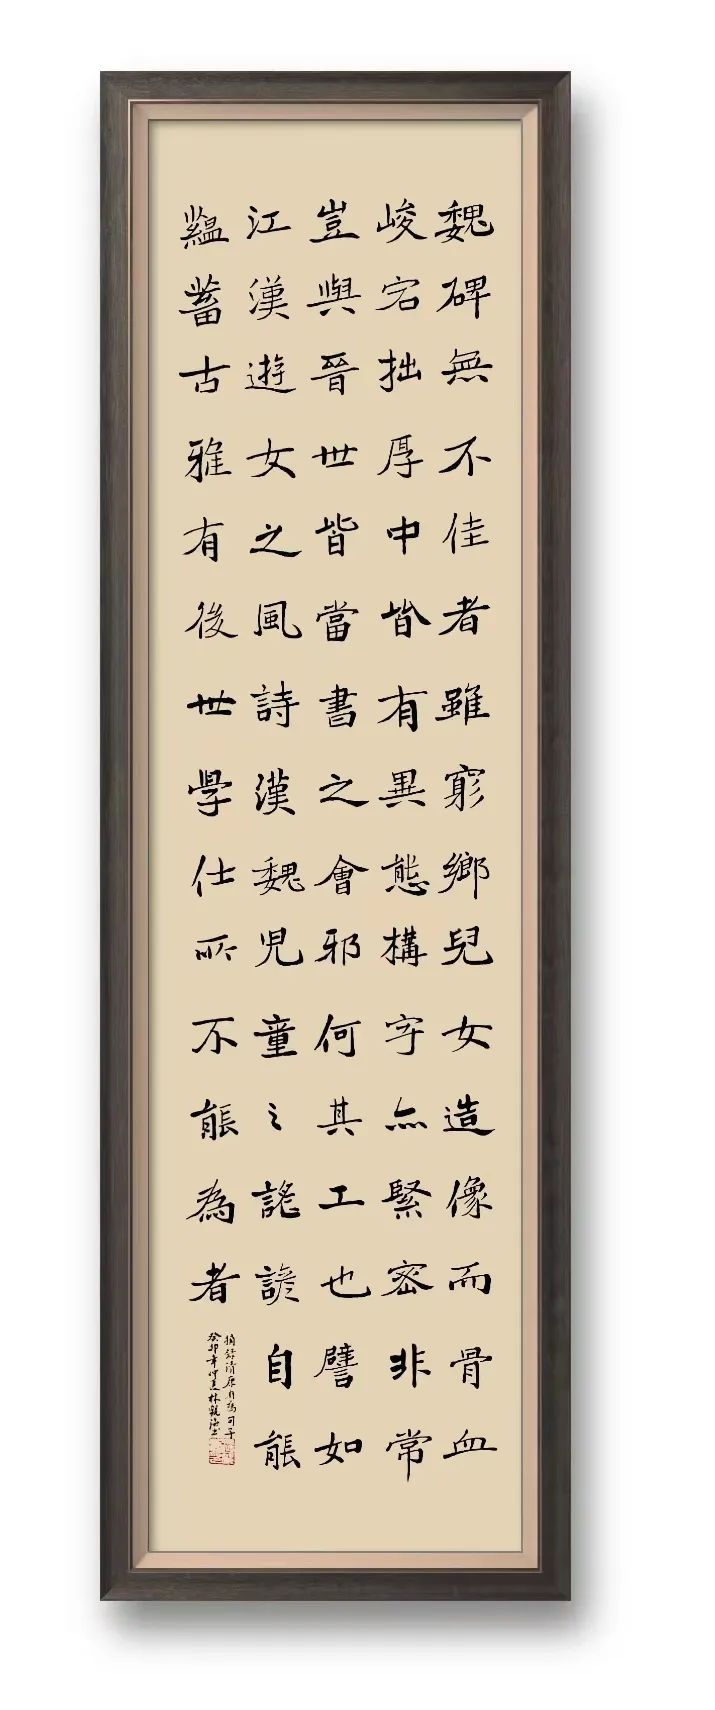 魏碑無不佳者雖窮鄉兒女造像而骨血
峻宕拙厚中皆有異態構字亦緊密非常
豈與晉世皆當書之會邪何其工也譬如
江漢遊女之風詩漢魏児童之謠諺自能
蘊蓄古雅有後世學仕所不能為者
摘錄清康有為句
癸卯年